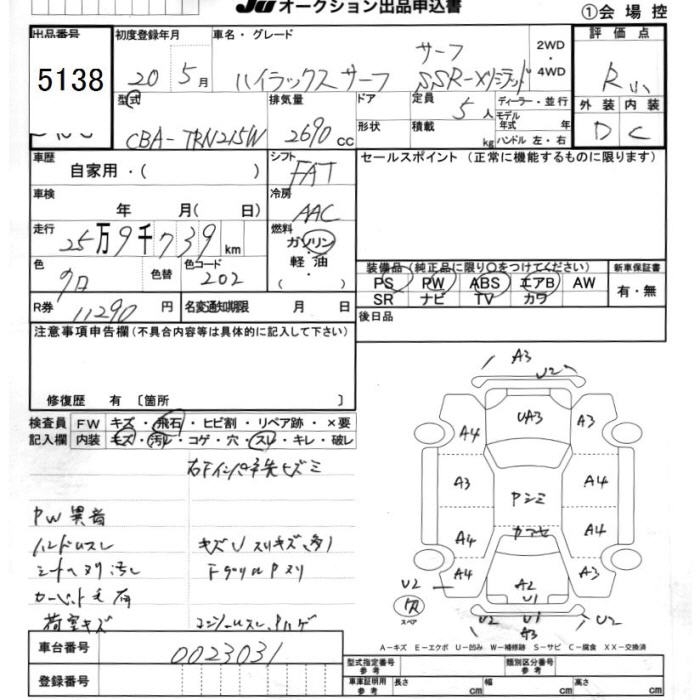 JU オークション出品申込書
①会場控
出品番号
5138
初度登録年月
20年5月
車名・グレード
ハイラックスサーフ
サーフ
SSR-Xリミテッド
2WD
・
4WD
評価点
R
外装 内装
D C
型式
CBA-TRN215W
排気量
2690 cc
ドア
形状
定員
5人
積載
kg
ディーラー・並行
モデル
年式 年
ハンドル 左・右
車歴
自家用・( )
シフト
FAT
セールスポイント (正常に機能するものに限ります)
車検
年 月( 日)
冷房
AAC
走行
25万9千739km
燃料
ガソリン
軽・油
色
クロ
色替
色コード
202
装備品(純正品に限り○をつけてください)
新車保証書
PS PW ABS エアB AW
SR ナビ TV カワ
有・無
R券
11290円
名変通知期限 月 日
後日品
注意事項申告欄(不具合内容等は具体的に記入して下さい)
修復歴 有〔箇所 〕
検査員
記入欄
FW キズ・飛石・ヒビ割・リペア跡・×要
内装 キズ・汚レ・コゲ・穴・スレ・キレ・破レ
PW 異音
ハンドルスレ
シートヘタリ汚レ
カーペット毛
荷室キズ
A3
U2
UA3
A4
A3
A3
A4
Pシミ
A4
A4
A4
A3
U2
A2
U1
スペア
U2
U1
U2
A3
A-キズ E-エクボ U-凹み W-補修跡 S-サビ C-腐食 XX-交換済
車台番号
0023031
登録番号
型式指定番号
参考
類別区分番号
参考
車庫証明用
参考
長さ cm
幅 cm
高さ cm